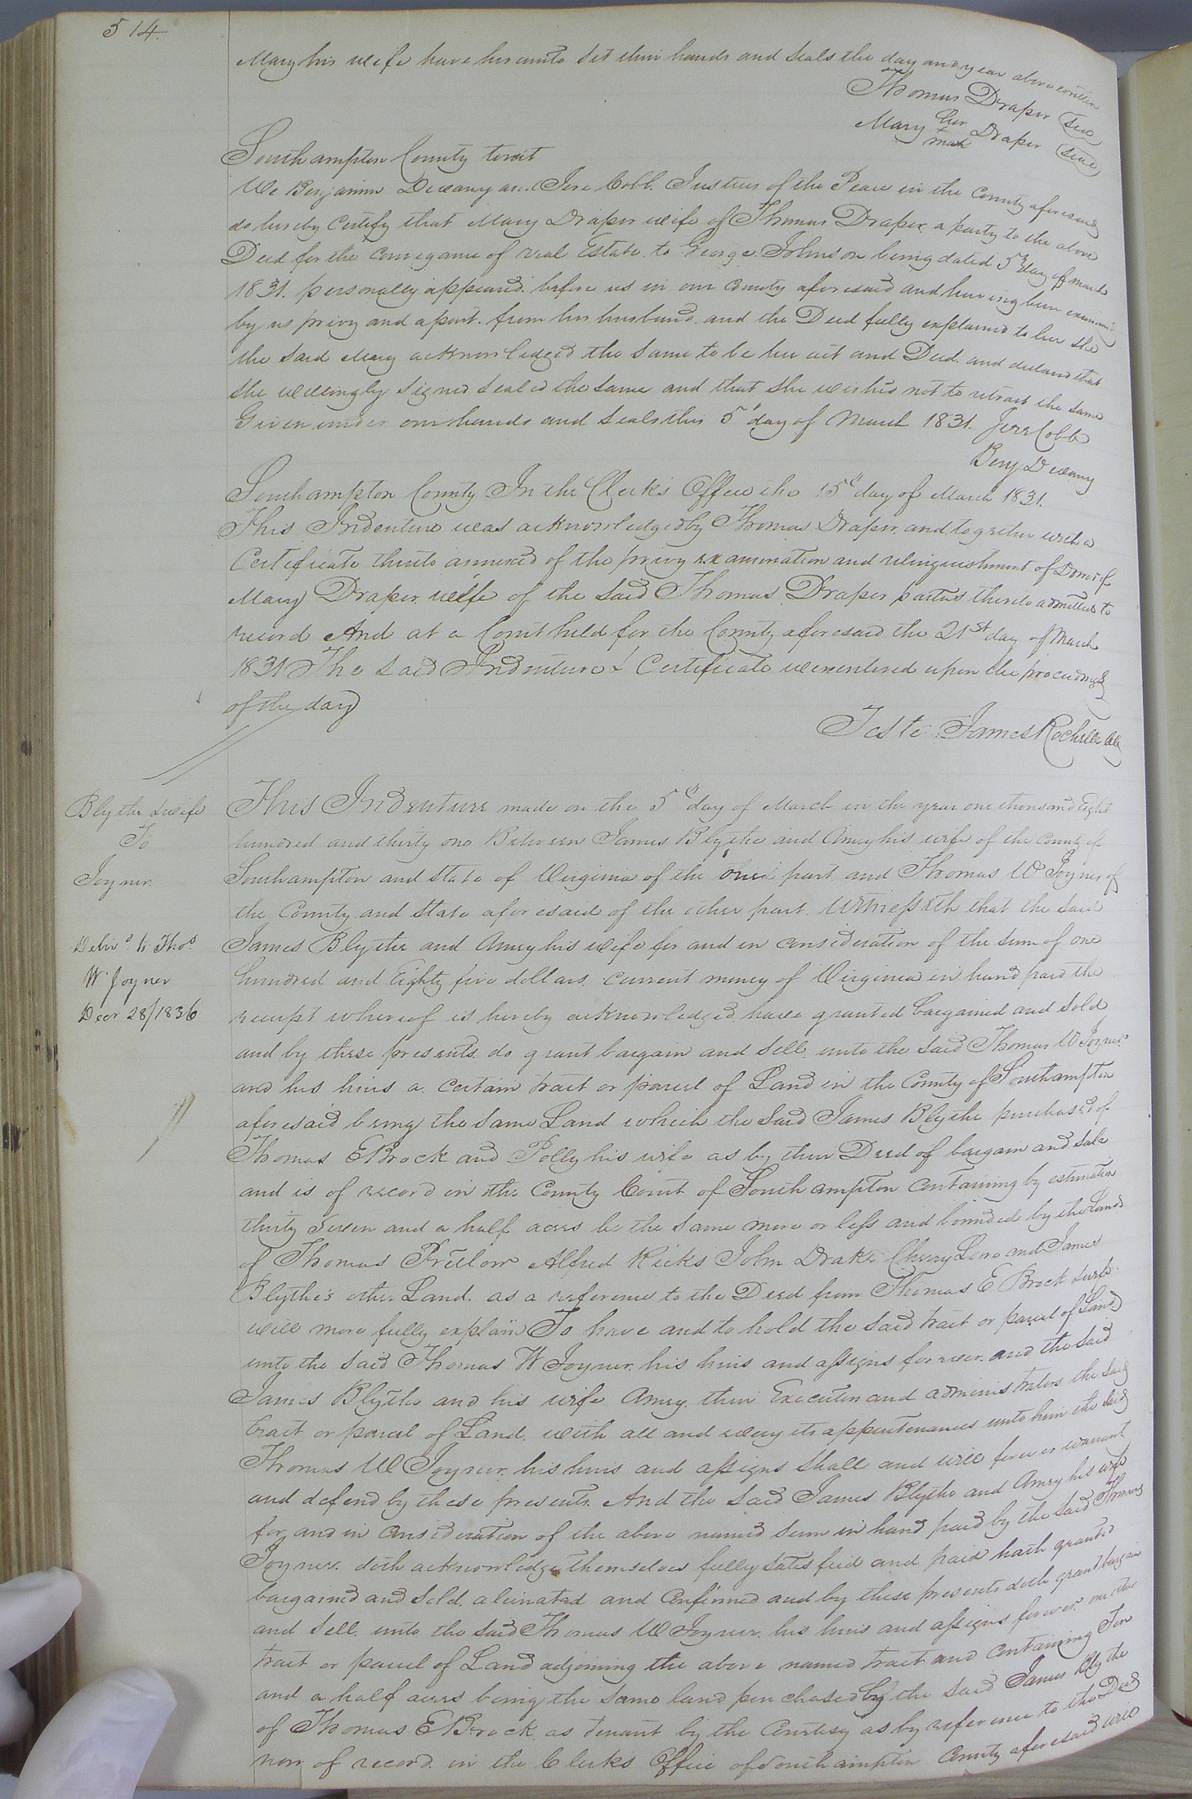 514.
Mary his wife have hereunto set their hands and seals the day and year above written
Thomas Draper (seal)
Mary her mark Draper (seal)
Southampton County towit
We Benjamin Devany and Jere Cobb Justices of the Peace in the County aforesaid
do hereby certify that Mary Draper wife of Thomas Draper a party to the above
Deed for the conveyance of real Estate to George Johnson being dated 5th day of march
1831. personally appeared before us in our County aforesaid and having been examined
by us privy and apart from her husband and the Deed fully explained to her she
the said Mary acknowledged the same to be her act and Deed and declared that
she willingly signed sealed the same and that she wishes not to retract the same
Given under our hands and seals this 5th day of March 1831. Jere Cobb
Benj Devany
Southampton County In the Clerk's Office the 15th day of March 1831.
This Indenture was acknowledged by Thomas Draper and together with a
Certificate thereto annexed of the privy examination and relinquishment of Dower of
Mary Draper wife of the said Thomas Draper parties thereto admitted to
record And at a Court held for the County aforesaid the 21st day of March
1831 The said Indenture & Certificate were entered upon the proceedings
of the day
Teste James Rochelle Clk
Blythe & wife
To
Joyner
Delivd to Thos
W Joyner
Decr 28/1836
This Indenture made on the 5th day of March in the year one thousand Eight
hundred and thirty one Between James Blythe and Amey his wife of the County of
Southampton and State of Virginia of the one part and Thomas W Joyner of
the County and State aforesaid of the other part Witnesseth that the said
James Blythe and Amey his wife for and in consideration of the sum of one
hundred and Eighty five dollars current money of Virginia in hand paid the
receipt whereof is hereby acknowledged have granted bargained and sold
and by these presents do grant bargain and sell unto the said Thomas W Joyner
and his heirs a certain tract or parcel of Land in the County of Southampton
aforesaid being the same Land which the said James Blythe purchased of
Thomas E Brock and Polly his wife as by their Deed of bargain and sale
and is of record in the County Court of Southampton containing by estimation
thirty seven and a half acres be the same more or less and bounded by the Lands
of Thomas Pretlow Alfred Ricks John Drake Cherry Lero and James
Blythe's other Land as a reference to the Deed from Thomas E Brock & wife
will more fully explain To have and to hold the said tract or parcel of Land
unto the said Thomas W Joyner his heirs and assigns forever and the said
James Blythe and his wife Amey their Executor and administrators the said
tract or parcel of Land with all and every its appurtenances unto him the said
Thomas W Joyner his heirs and assigns shall and will forever warrant
and defend by these presents And the said James Blythe and Amey his wife
for and in consideration of the above named sum in hand paid by the said Thomas
Joyner doth acknowledge themselves fully satisfied and paid hath granted
bargained and sold alienated and confirmed and by these presents doth grant bargain
and sell unto the said Thomas W Joyner his heirs and assigns forever another
tract or parcel of Land adjoining the above named tract and containing Ten
and a half acres being the same land purchased by the said James Blythe
of Thomas E Brock as tenant by the Courtesy as by reference to the Deed
now of record in the Clerks Office of Southampton County aforesaid will